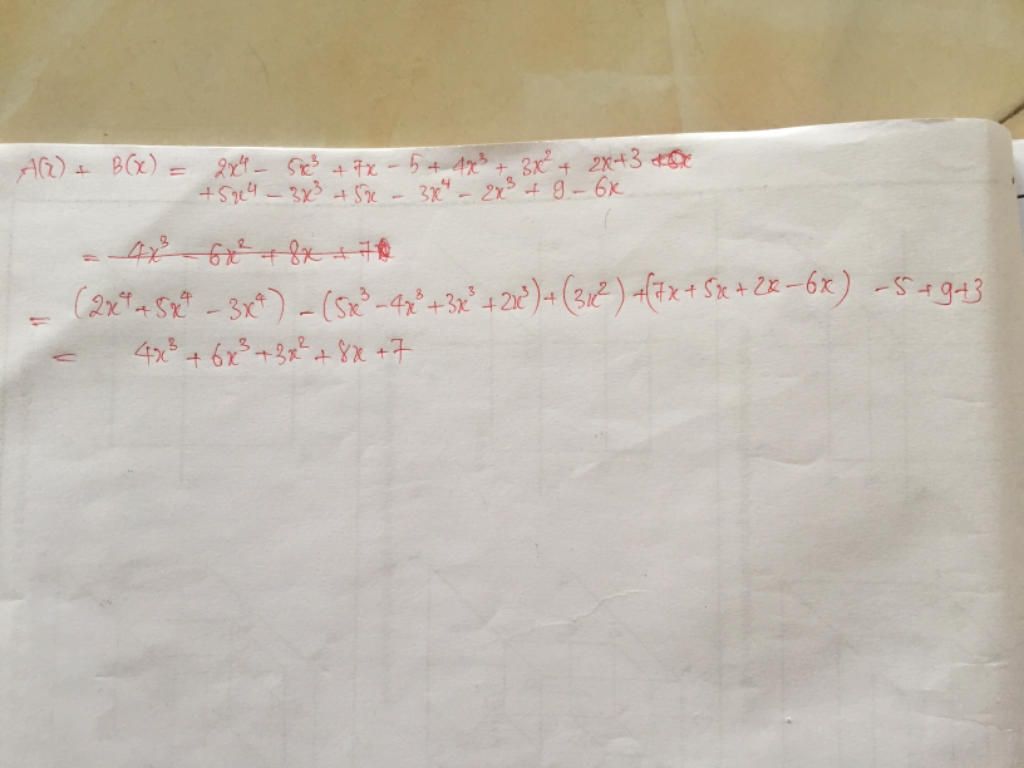 A(x) + B(x) = 2x⁴ - 5x³ + 7x - 5 + 4x³ + 3x² + 2x + 3
+ 5x⁴ - 3x³ + 5x - 3x⁴ - 2x³ + 9 - 6x
= 4x³ - 6x² + 8x + 7
= (2x⁴ + 5x⁴ - 3x⁴) - (5x³ - 4x³ + 3x³ + 2x³) + (3x²) + (7x + 5x + 2x - 6x) - 5 + 9 + 3
= 4x³ + 6x³ + 3x² + 8x + 7